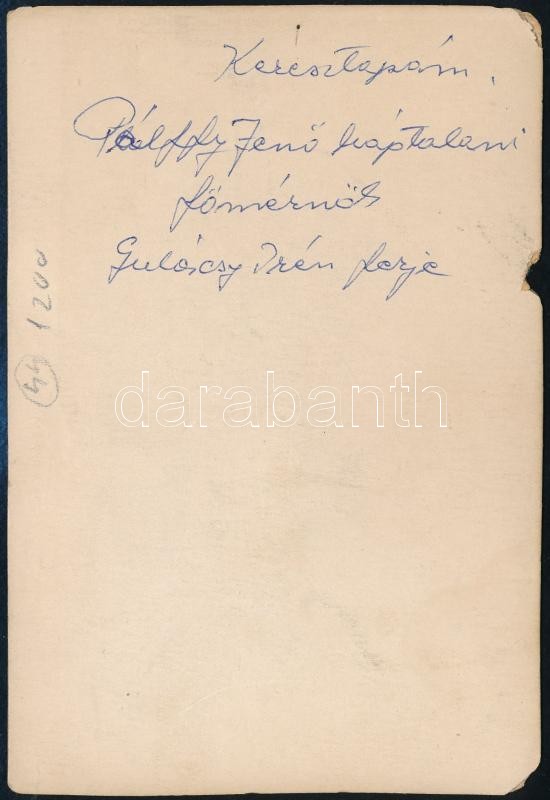 Keresztapám.
Pálffy Jenő káptalani
főmérnök
Gulácsy Irén férje
44 1200
darabanth